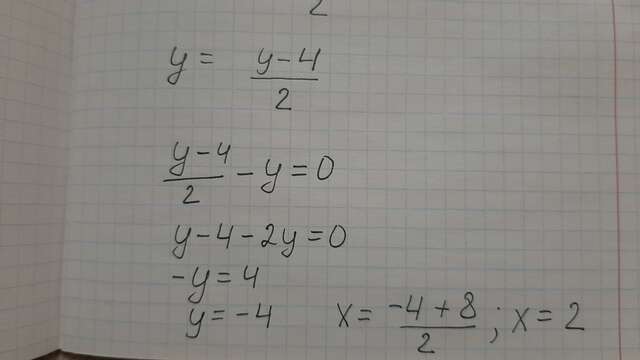 2
y = (y-4)/2
(y-4)/2 - y = 0
y - 4 - 2y = 0
-y = 4
y = -4    x = (-4+8)/2 ; x = 2